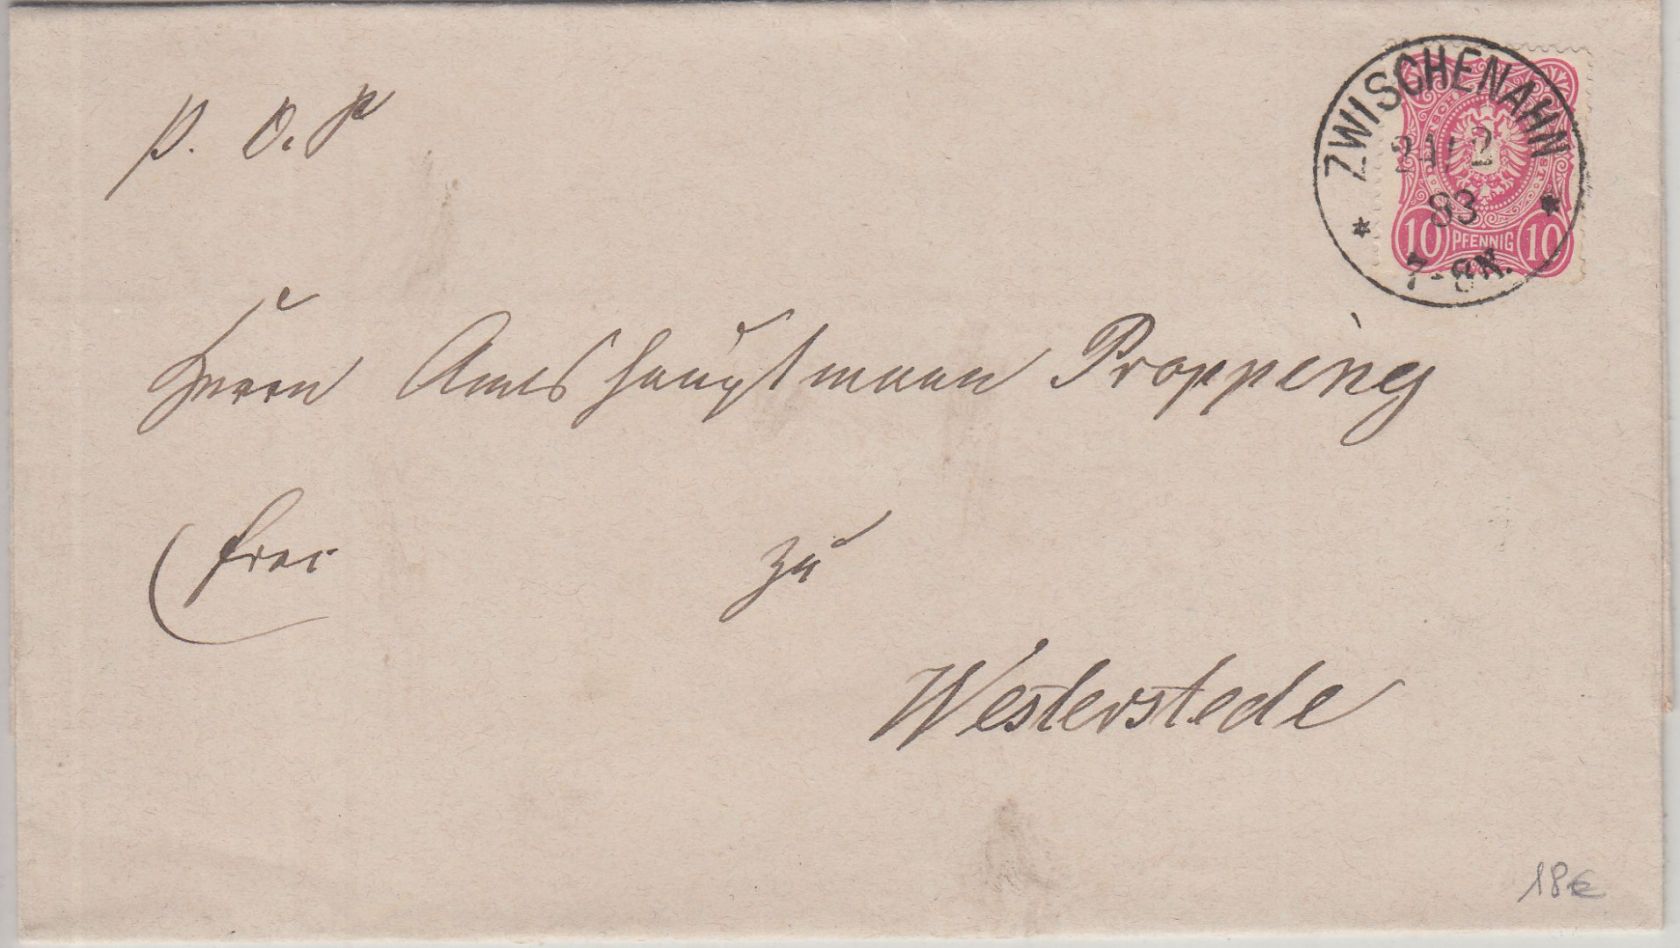 p. o. p
ZWISCHENAHN
21/2
83
7-8N.
10 PFENNIG 10
Herrn Amtshauptmann Propping
frei zu
Westerstede
18€